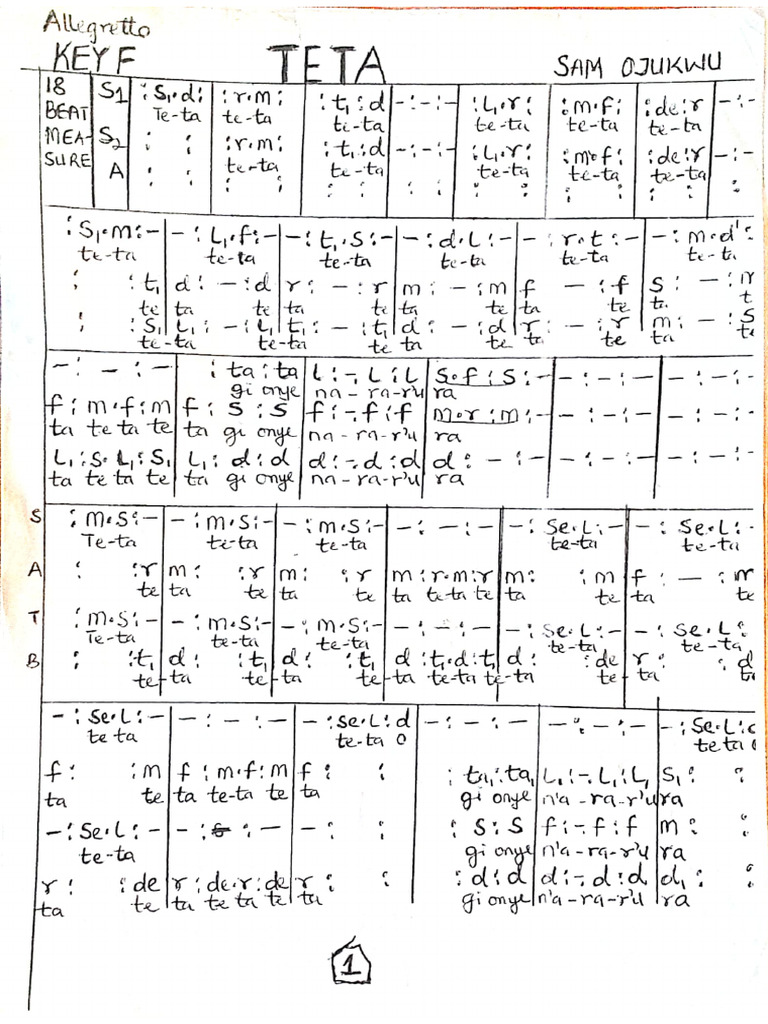 Allegretto
KEY F TETA SAM OJUKWU
18 BEAT MEA- SURE
S1 | : S₁.d : | : r.m : | : t₁ : d | - : - : - | : L₁.r : | : m.f : | : de : r | - : -
Te-ta te-ta te-ta te-ta te-ta te-ta
S2 | : : | : r.m : | : t₁ : d | - : - : - | : L₁.r : | : m.f : | : de : r | - : -
te-ta te-ta te-ta te-ta te-ta
A | : : | : : | : : | : : | : : | : : | : : | :
: S₁.m : - | - : L₁.f : - | - : t₁.s : - | - : d.L : - | - : r.t : - | - : m.d' :
te-ta te-ta te-ta te-ta te-ta te-ta
: : t₁ | d : - : d | r : - : r | m : - : m | f - : f | s : - :
te ta te ta te ta te ta te
: : S₁ | L₁ : - : L₁ | t₁ : - : t₁ | d : - : d | r : - : r | m : - : s
te-ta te-ta te ta te ta te ta te
- : - : - | : ta : ta | L : -.L : L | s.f : s : - | - : - : - | - : - : -
gi onye na-ra-r'u ra
f : m.f : m | f : s : s | f : -.f : f | m.r : m : - | - : - : - | - : - : -
ta te ta te ta gi onye na-ra-r'u ra
L₁ : S₁.L₁ : S₁ | L₁ : d : d | d : -.d : d | d : - : - | - : - : - | - : - : -
ta te ta te ta gi onye na-ra-r'u ra
S | : m.s : - | - : m.s : - | - : m.s : - | - : - : - | - : se.L : - | - : se.L :
Te-ta te-ta te-ta te-ta te-ta
A | : : r | m : : r | m : : r | m : r.m : r | m : : m | f : - : m
te ta te ta te ta te ta te ta te ta
T | : m.s : - | - : m.s : - | - : m.s : - | - : - : - | - : se.L : - | - : se.L :
Te-ta te-ta te-ta te-ta te-ta
B | : : t₁ | d : : t₁ | d : : t₁ | d : t₁.d : t₁ | d : : de | r : : d
te-ta te-ta te-ta te-ta te-ta te ta
- : se.L : - | - : - : - | - : se.L : d | - : - : - | - : - : - | - : se.L :
te ta te-ta o te ta
f : : m | f : m.f : m | f : : | : ta₁ : ta₁ | L₁ : -.L₁ : L₁ | S₁ : :
ta te ta te-ta te ta gi onye n'a-ra-r'u ra
- : se.L : - | - : : - | - : : | : s : s | f : -.f : f | m : :
te-ta gi onye n'a-ra-r'u ra
r : : de | r : de.r : de | r : : | : d : d | d : -.d : d | d₁ : :
ta te ta te ta te ta gi onye n'a-ra-r'u ra
1